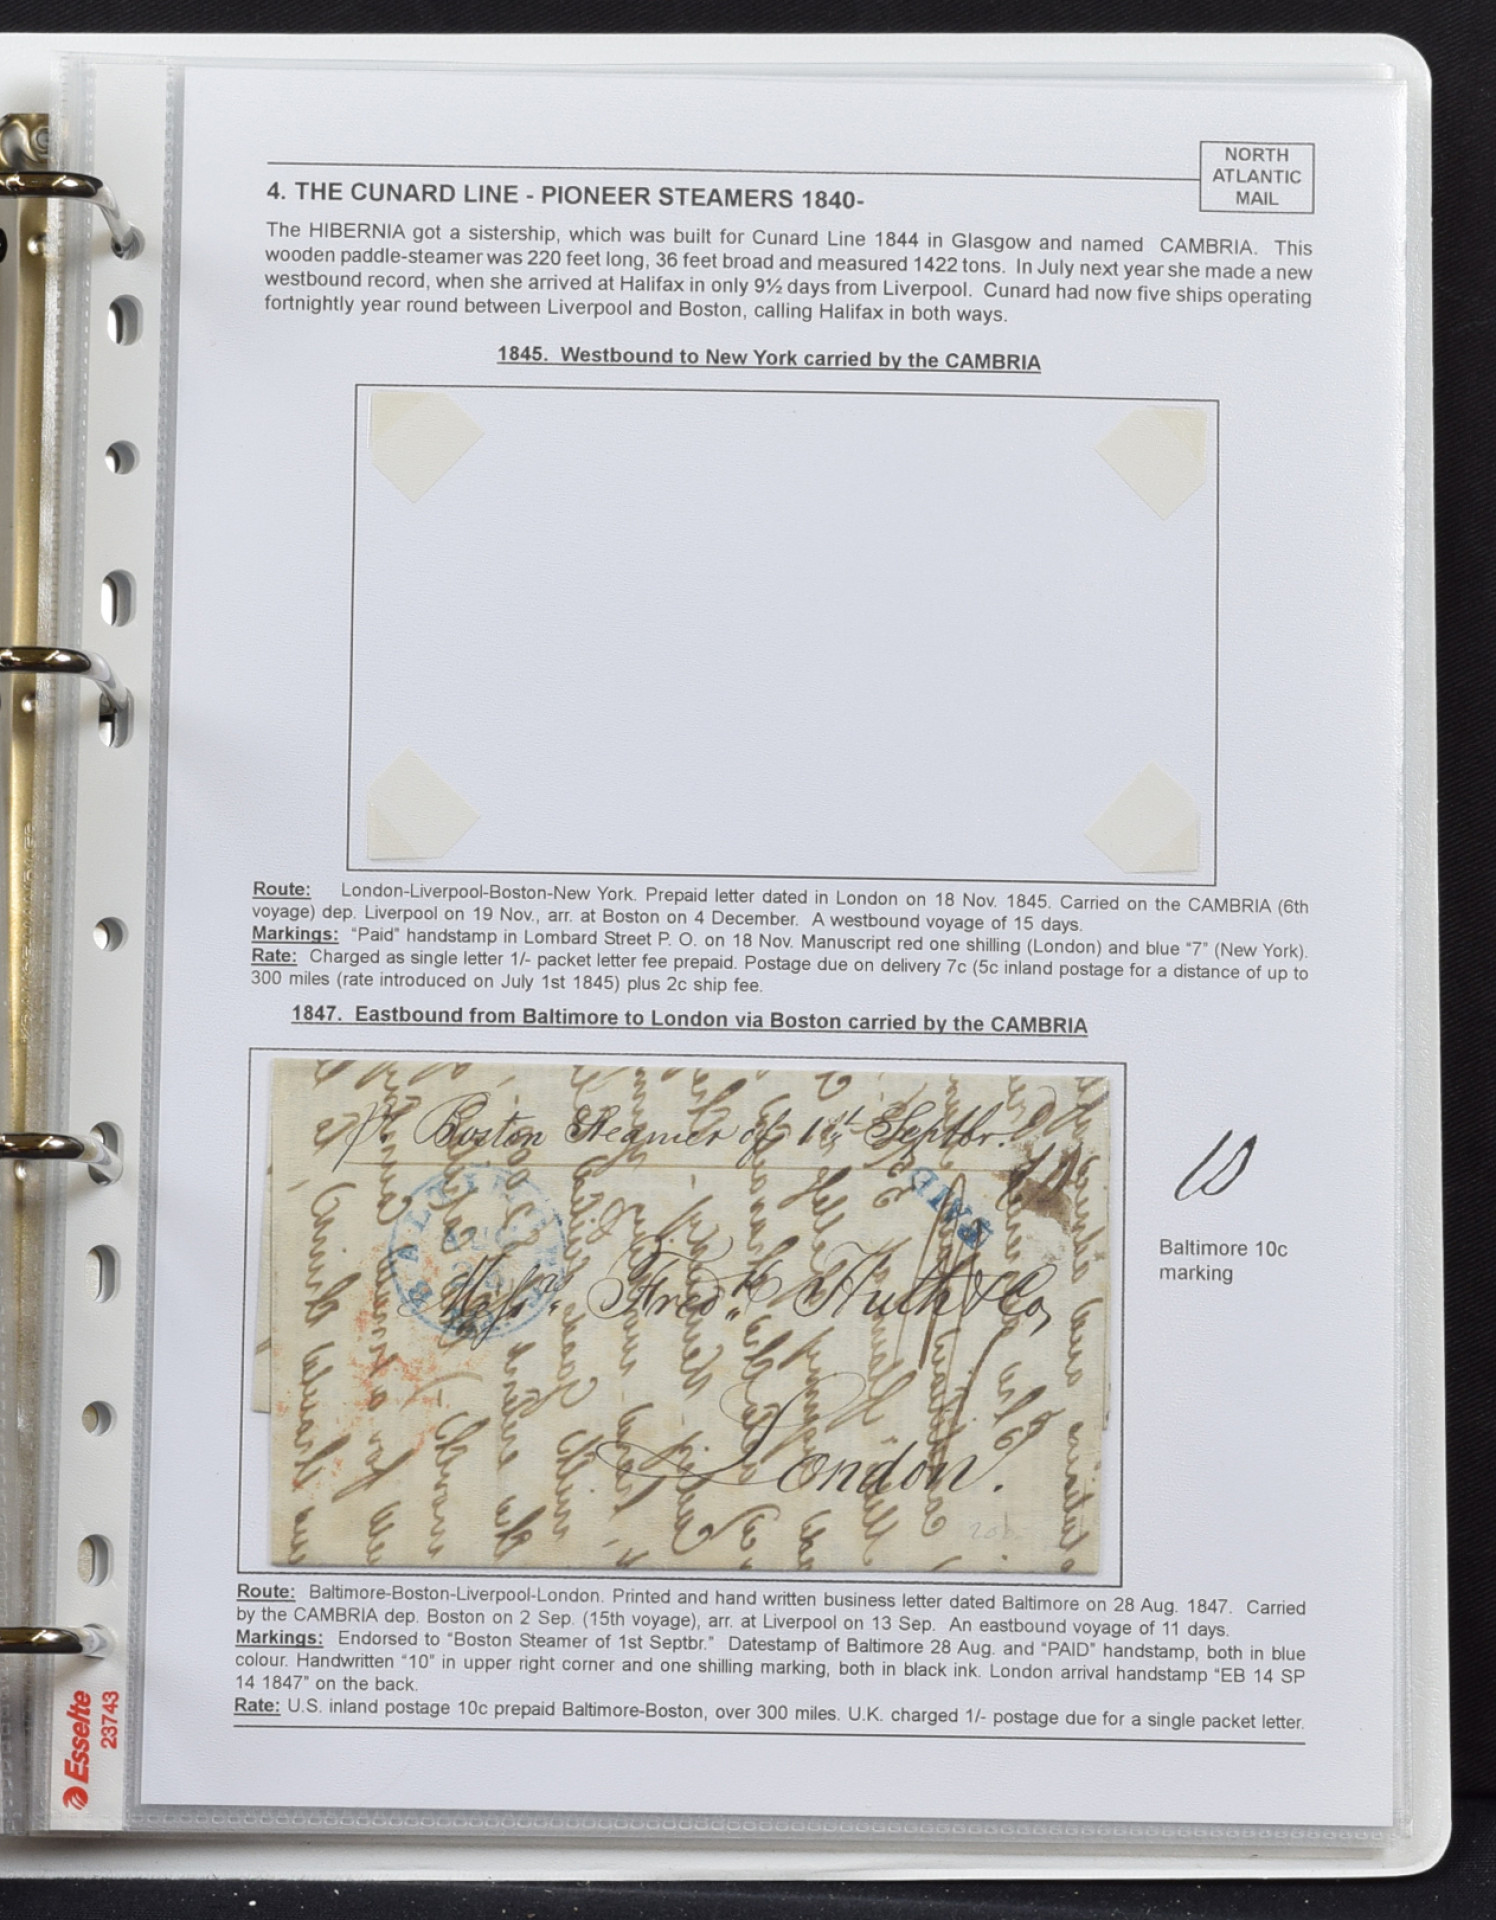 NORTH
ATLANTIC
MAIL
4. THE CUNARD LINE - PIONEER STEAMERS 1840-
The HIBERNIA got a sistership, which was built for Cunard Line 1844 in Glasgow and named CAMBRIA. This
wooden paddle-steamer was 220 feet long, 36 feet broad and measured 1422 tons. In July next year she made a new
westbound record, when she arrived at Halifax in only 9½ days from Liverpool. Cunard had now five ships operating
fortnightly year round between Liverpool and Boston, calling Halifax in both ways.
1845. Westbound to New York carried by the CAMBRIA
Route: London-Liverpool-Boston-New York. Prepaid letter dated in London on 18 Nov. 1845. Carried on the CAMBRIA (6th
voyage) dep. Liverpool on 19 Nov., arr. at Boston on 4 December. A westbound voyage of 15 days.
Markings: "Paid" handstamp in Lombard Street P. O. on 18 Nov. Manuscript red one shilling (London) and blue "7" (New York).
Rate: Charged as single letter 1/- packet letter fee prepaid. Postage due on delivery 7c (5c inland postage for a distance of up to
300 miles (rate introduced on July 1st 1845) plus 2c ship fee.
1847. Eastbound from Baltimore to London via Boston carried by the CAMBRIA
pr. Boston Steamer of 1st Septbr.
10
PAID
Messrs. Fredk. Huth & Co,
London.
10
Baltimore 10c
marking
Route: Baltimore-Boston-Liverpool-London. Printed and hand written business letter dated Baltimore on 28 Aug. 1847. Carried
by the CAMBRIA dep. Boston on 2 Sep. (15th voyage), arr. at Liverpool on 13 Sep. An eastbound voyage of 11 days.
Markings: Endorsed to "Boston Steamer of 1st Septbr." Datestamp of Baltimore 28 Aug. and "PAID" handstamp, both in blue
colour. Handwritten "10" in upper right corner and one shilling marking, both in black ink. London arrival handstamp "EB 14 SP
14 1847" on the back.
Rate: U.S. inland postage 10c prepaid Baltimore-Boston, over 300 miles. U.K. charged 1/- postage due for a single packet letter.
Esselte
23743